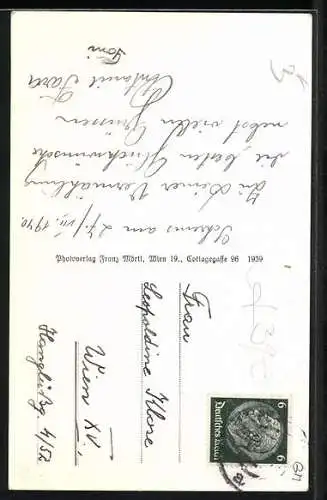 am 27./VII. 1940.
Zu Deiner Vermählung
die besten Glückwünsche
nebst vielen Grüssen
Toni
Photoverlag Franz Mörtl, Wien 19., Cottagegasse 96 1939
Frau
Leopoldine Klose
Wien XV.
4/52
Deutsches Reich
6
6